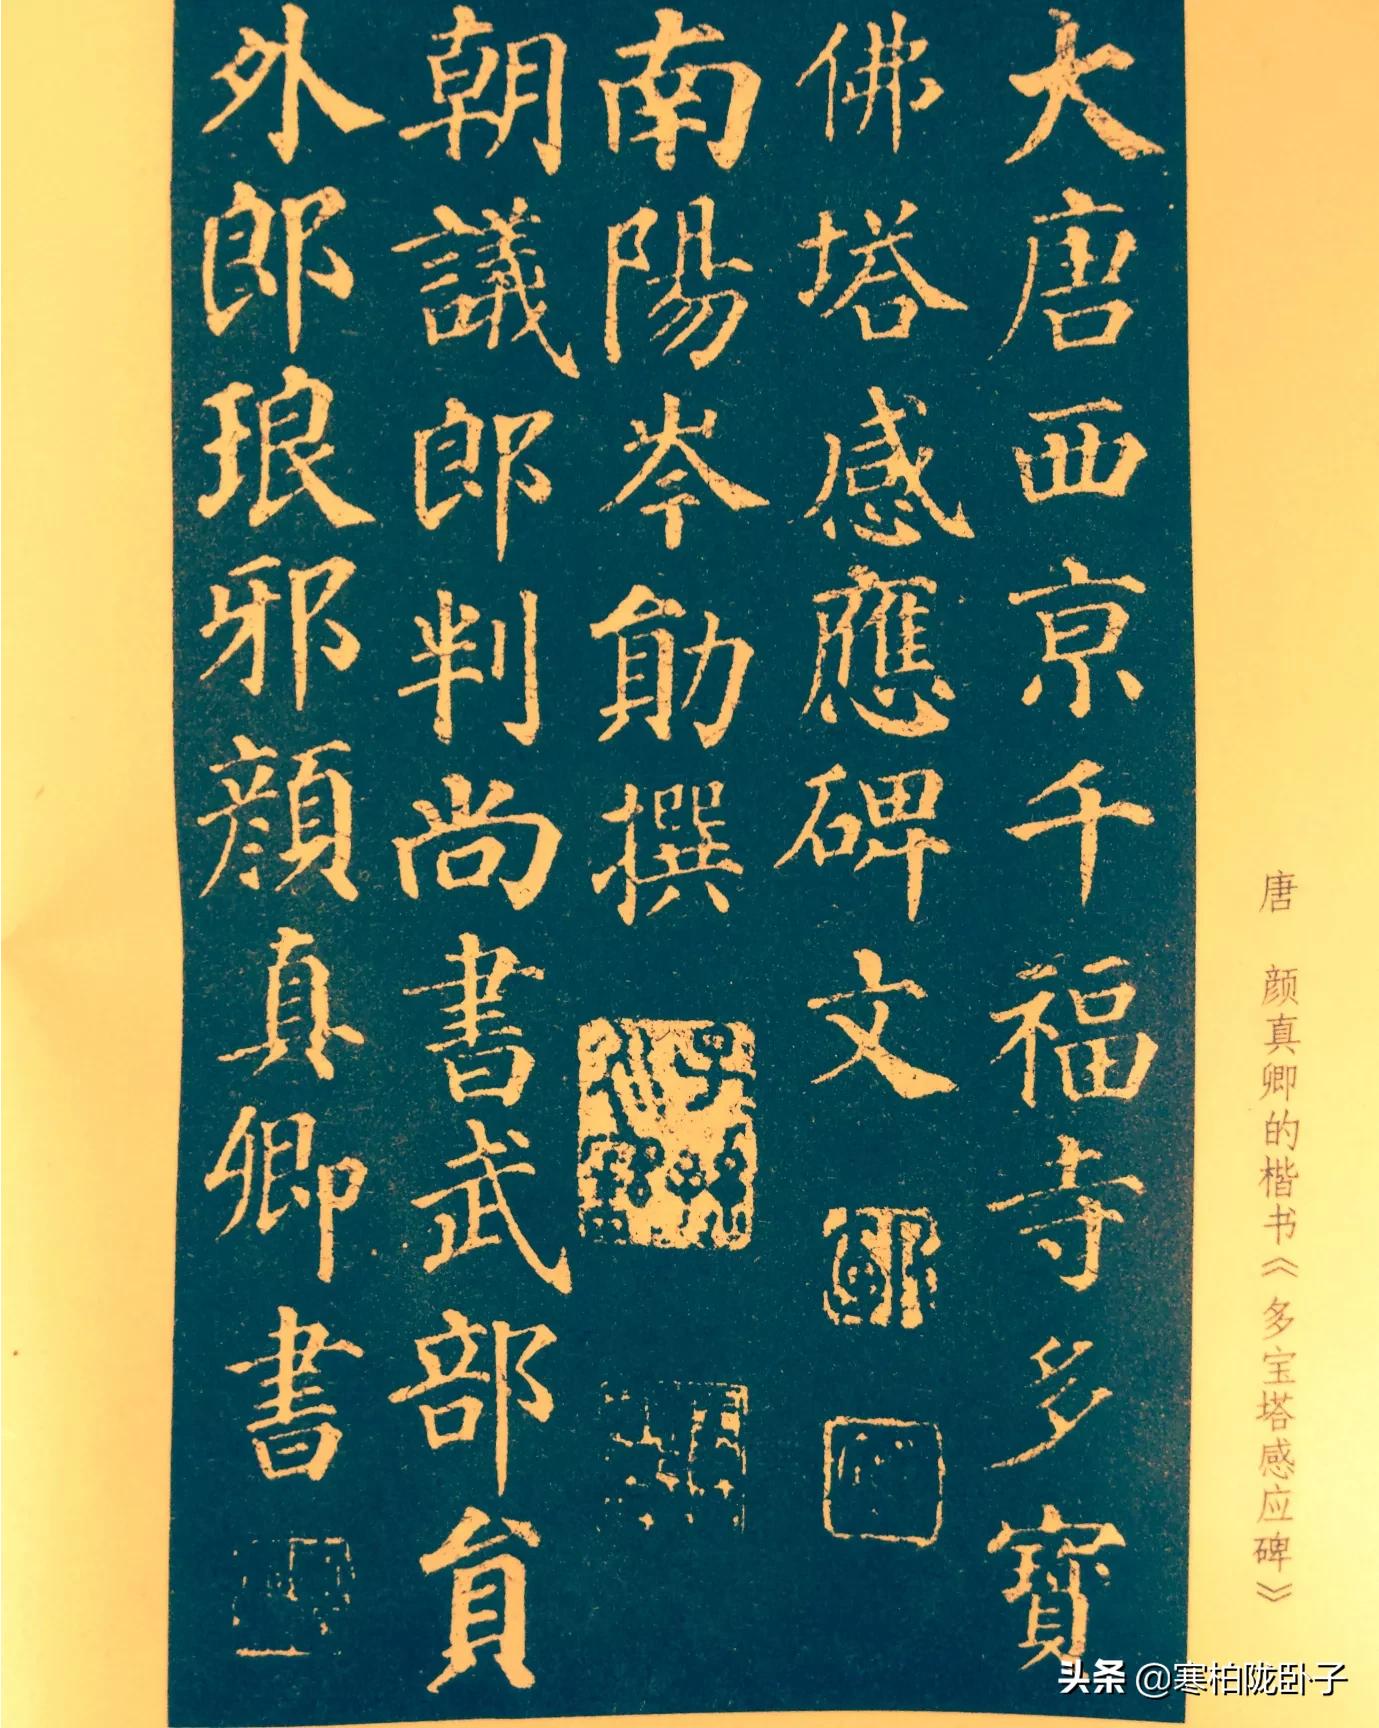 唐 颜真卿的楷书《多宝塔感应碑》
大唐西亰千福寺多寶
佛塔感應碑文
南陽岑勛撰
朝議郎判尚書武部貟
外郎琅邪顏真卿書
头条 @寒柏陇卧子